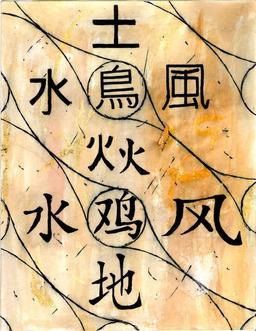 土
水 鳥 風
炏
水 鸡 风
地